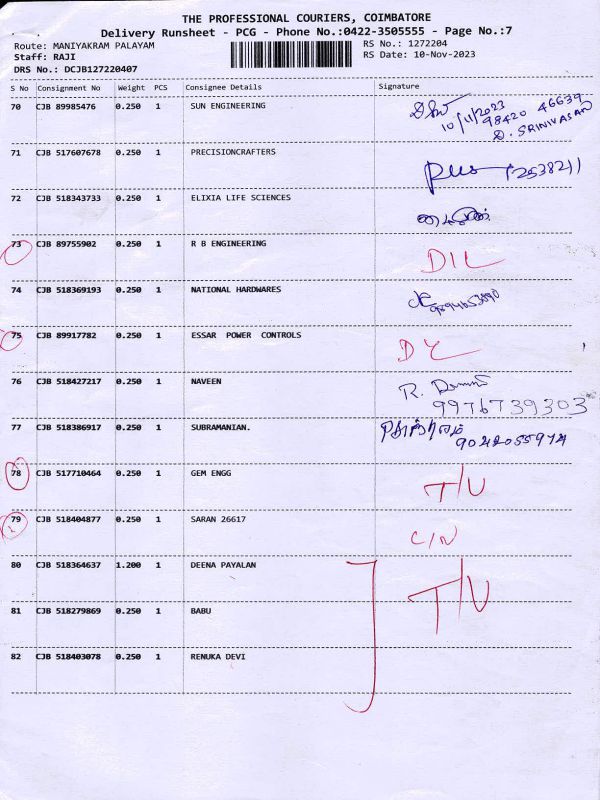 THE PROFESSIONAL COURIERS, COIMBATORE
Delivery Runsheet - PCG - Phone No.:0422-3505555 - Page No.:7
Route: MANIYAKRAM PALAYAM RS No.: 1272204
Staff: RAJI RS Date: 10-Nov-2023
DRS No.: DCJB127220407
S No Consignment No Weight PCS Consignee Details Signature
70 CJB 89985476 0.250 1 SUN ENGINEERING
10/11/2023
98420 46639
D. SRINIVASAN
71 CJB 517607678 0.250 1 PRECISIONCRAFTERS
72 CJB 518343733 0.250 1 ELIXIA LIFE SCIENCES
73 CJB 89755902 0.250 1 R B ENGINEERING D/L
74 CJB 518369193 0.250 1 NATIONAL HARDWARES
75 CJB 89917782 0.250 1 ESSAR POWER CONTROLS
76 CJB 518427217 0.250 1 NAVEEN R.
9976739303
77 CJB 518386917 0.250 1 SUBRAMANIAN.
9042055974
78 CJB 517710464 0.250 1 GEM ENGG T/U
79 CJB 518404877 0.250 1 SARAN 26617 C/N
80 CJB 518364637 1.200 1 DEENA PAYALAN T/U
81 CJB 518279869 0.250 1 BABU
82 CJB 518403078 0.250 1 RENUKA DEVI